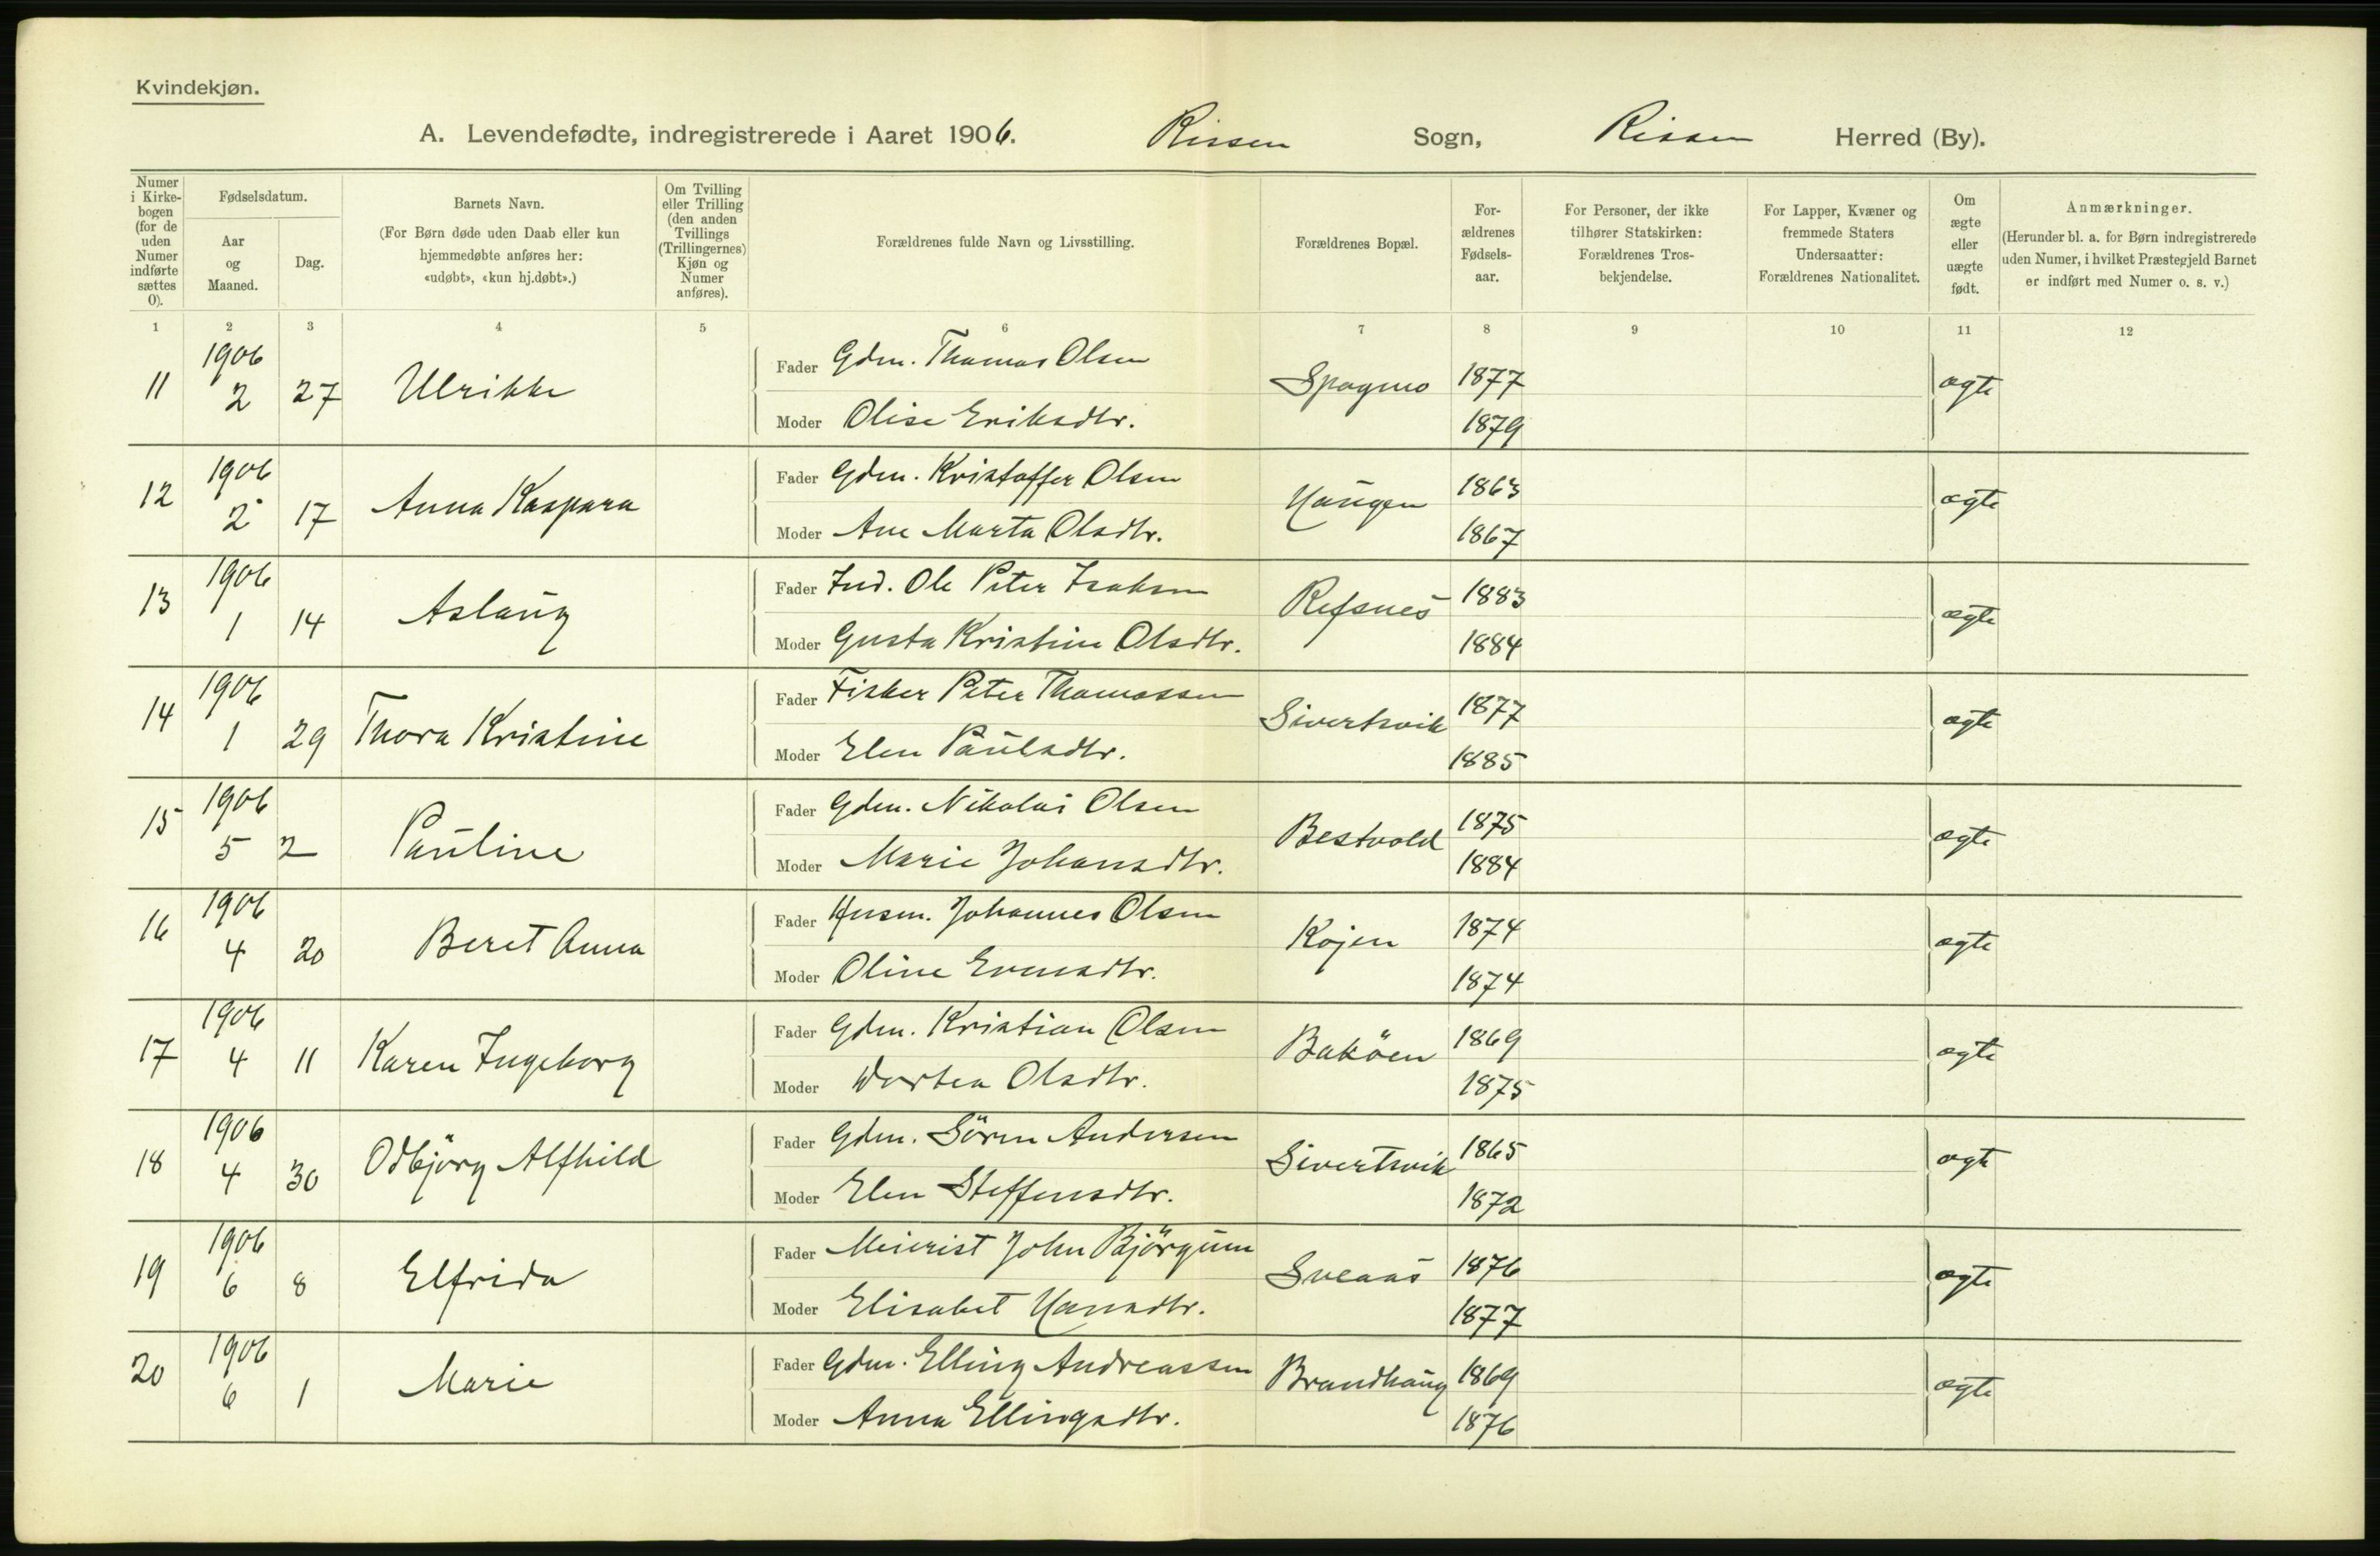 Kvindekjøn.
A. Levendefødte, indregistrerede i Aaret 1906. Rissen Sogn, Rissen Herred (By).
Numer i Kirkebogen (for de uden Numer indførte sættes 0).
Fødselsdatum.
Aar og Maaned.
Dag.
Barnets Navn.
(For Børn døde uden Daab eller kun hjemmedøbte anføres her: «udøbt», «kun hj.døbt».)
Om Tvilling eller Trilling (den anden Tvillings (Trillingernes) Kjøn og Numer anføres).
Forældrenes fulde Navn og Livsstilling.
Forældrenes Bopæl.
Forældrenes Fødselsaar.
For Personer, der ikke tilhører Statskirken: Forældrenes Trosbekjendelse.
For Lapper, Kvæner og fremmede Staters Undersaatter: Forældrenes Nationalitet.
Om ægte eller uægte født.
Anmærkninger.
(Herunder bl. a. for Børn indregistrerede uden Numer, i hvilket Præstegjeld Barnet er indført med Numer o. s. v.)
1 2 3 4 5 6 7 8 9 10 11 12
11 1906 2 27 Ulrikke Fader Gdm. Thomas Olsen Spagmo 1877 ægte
Moder Olise Eriksdtr. 1879
12 1906 2 17 Anna Kaspara Fader Gdm. Kristoffer Olsen Haugen 1863 ægte
Moder Ane Marta Olsdtr. 1867
13 1906 1 14 Aslaug Fader Ind. Ole Peter Isaksen Refsnes 1883 ægte
Moder Gusta Kristine Olsdtr. 1884
14 1906 1 29 Thora Kristine Fader Fisker Peter Thomassen Sivertsvik 1877 ægte
Moder Elen Paulsdtr. 1885
15 1906 5 2 Pauline Fader Gdm. Nikolai Olsen Bestvold 1875 ægte
Moder Marie Johansdtr. 1884
16 1906 4 20 Beret Anna Fader Husm. Johannes Olsen Kojen 1874 ægte
Moder Oline Evensdtr. 1874
17 1906 4 11 Karen Ingeborg Fader Gdm. Kristian Olsen Baköen 1869 ægte
Moder Dortea Olsdtr. 1875
18 1906 4 30 Odbjörg Alfhild Fader Gdm. Sören Andersen Sivertsvik 1865 ægte
Moder Elen Steffensdtr. 1872
19 1906 6 8 Elfrida Fader Meierist John Björgum Sveaas 1876 ægte
Moder Elisabet Hansdtr. 1877
20 1906 6 1 Marie Fader Gdm. Elling Andreassen Brandhaug 1869 ægte
Moder Anna Ellingsdtr. 1876